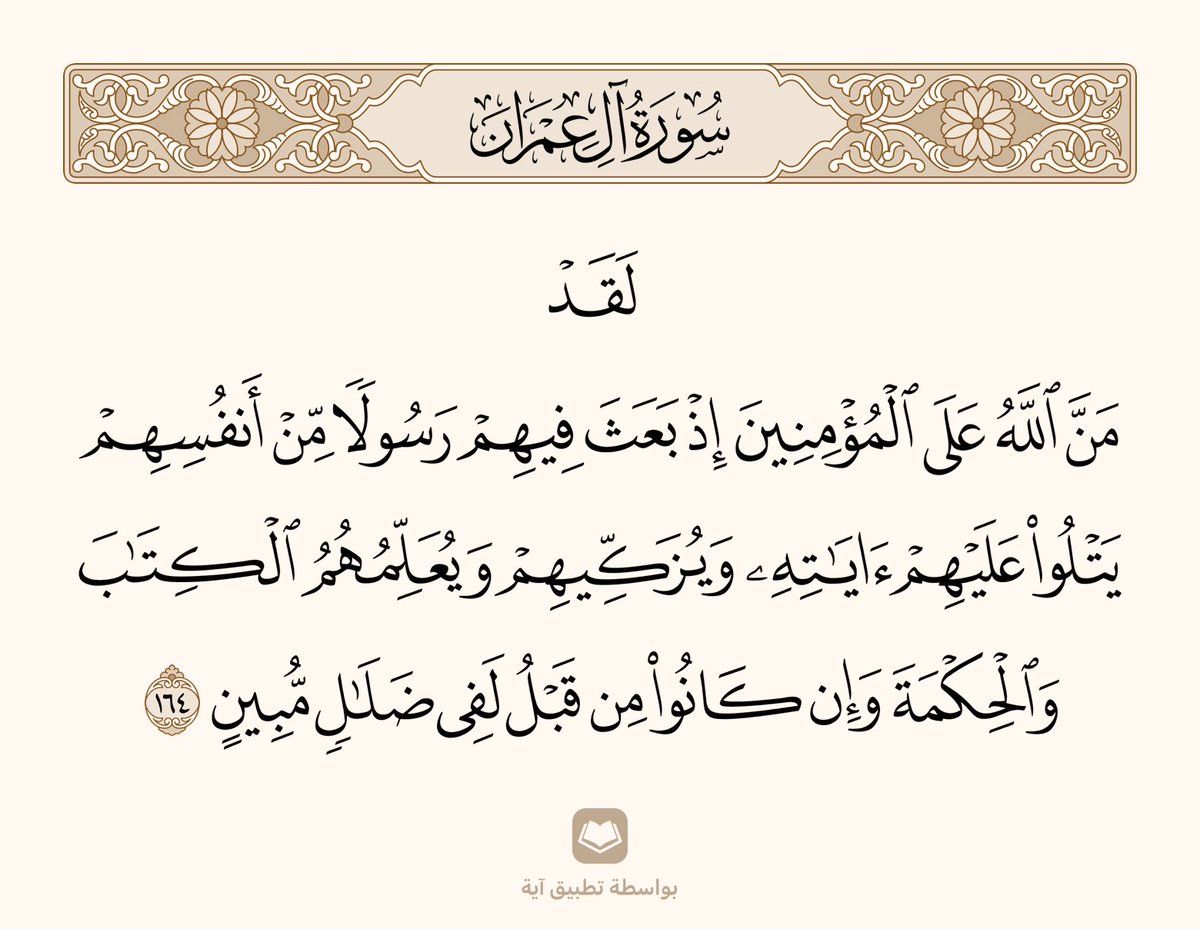 سُورَةُ آلِ عِمْرَان
لَقَدْ
مَنَّ ٱللَّهُ عَلَى ٱلْمُؤْمِنِينَ إِذْ بَعَثَ فِيهِمْ رَسُولًا مِّنْ أَنفُسِهِمْ
يَتْلُوا۟ عَلَيْهِمْ ءَايَـٰتِهِۦ وَيُزَكِّيهِمْ وَيُعَلِّمُهُمُ ٱلْكِتَـٰبَ
وَٱلْحِكْمَةَ وَإِن كَانُوا۟ مِن قَبْلُ لَفِى ضَلَـٰلٍ مُّبِينٍ ١٦٤
بواسطة تطبيق آية